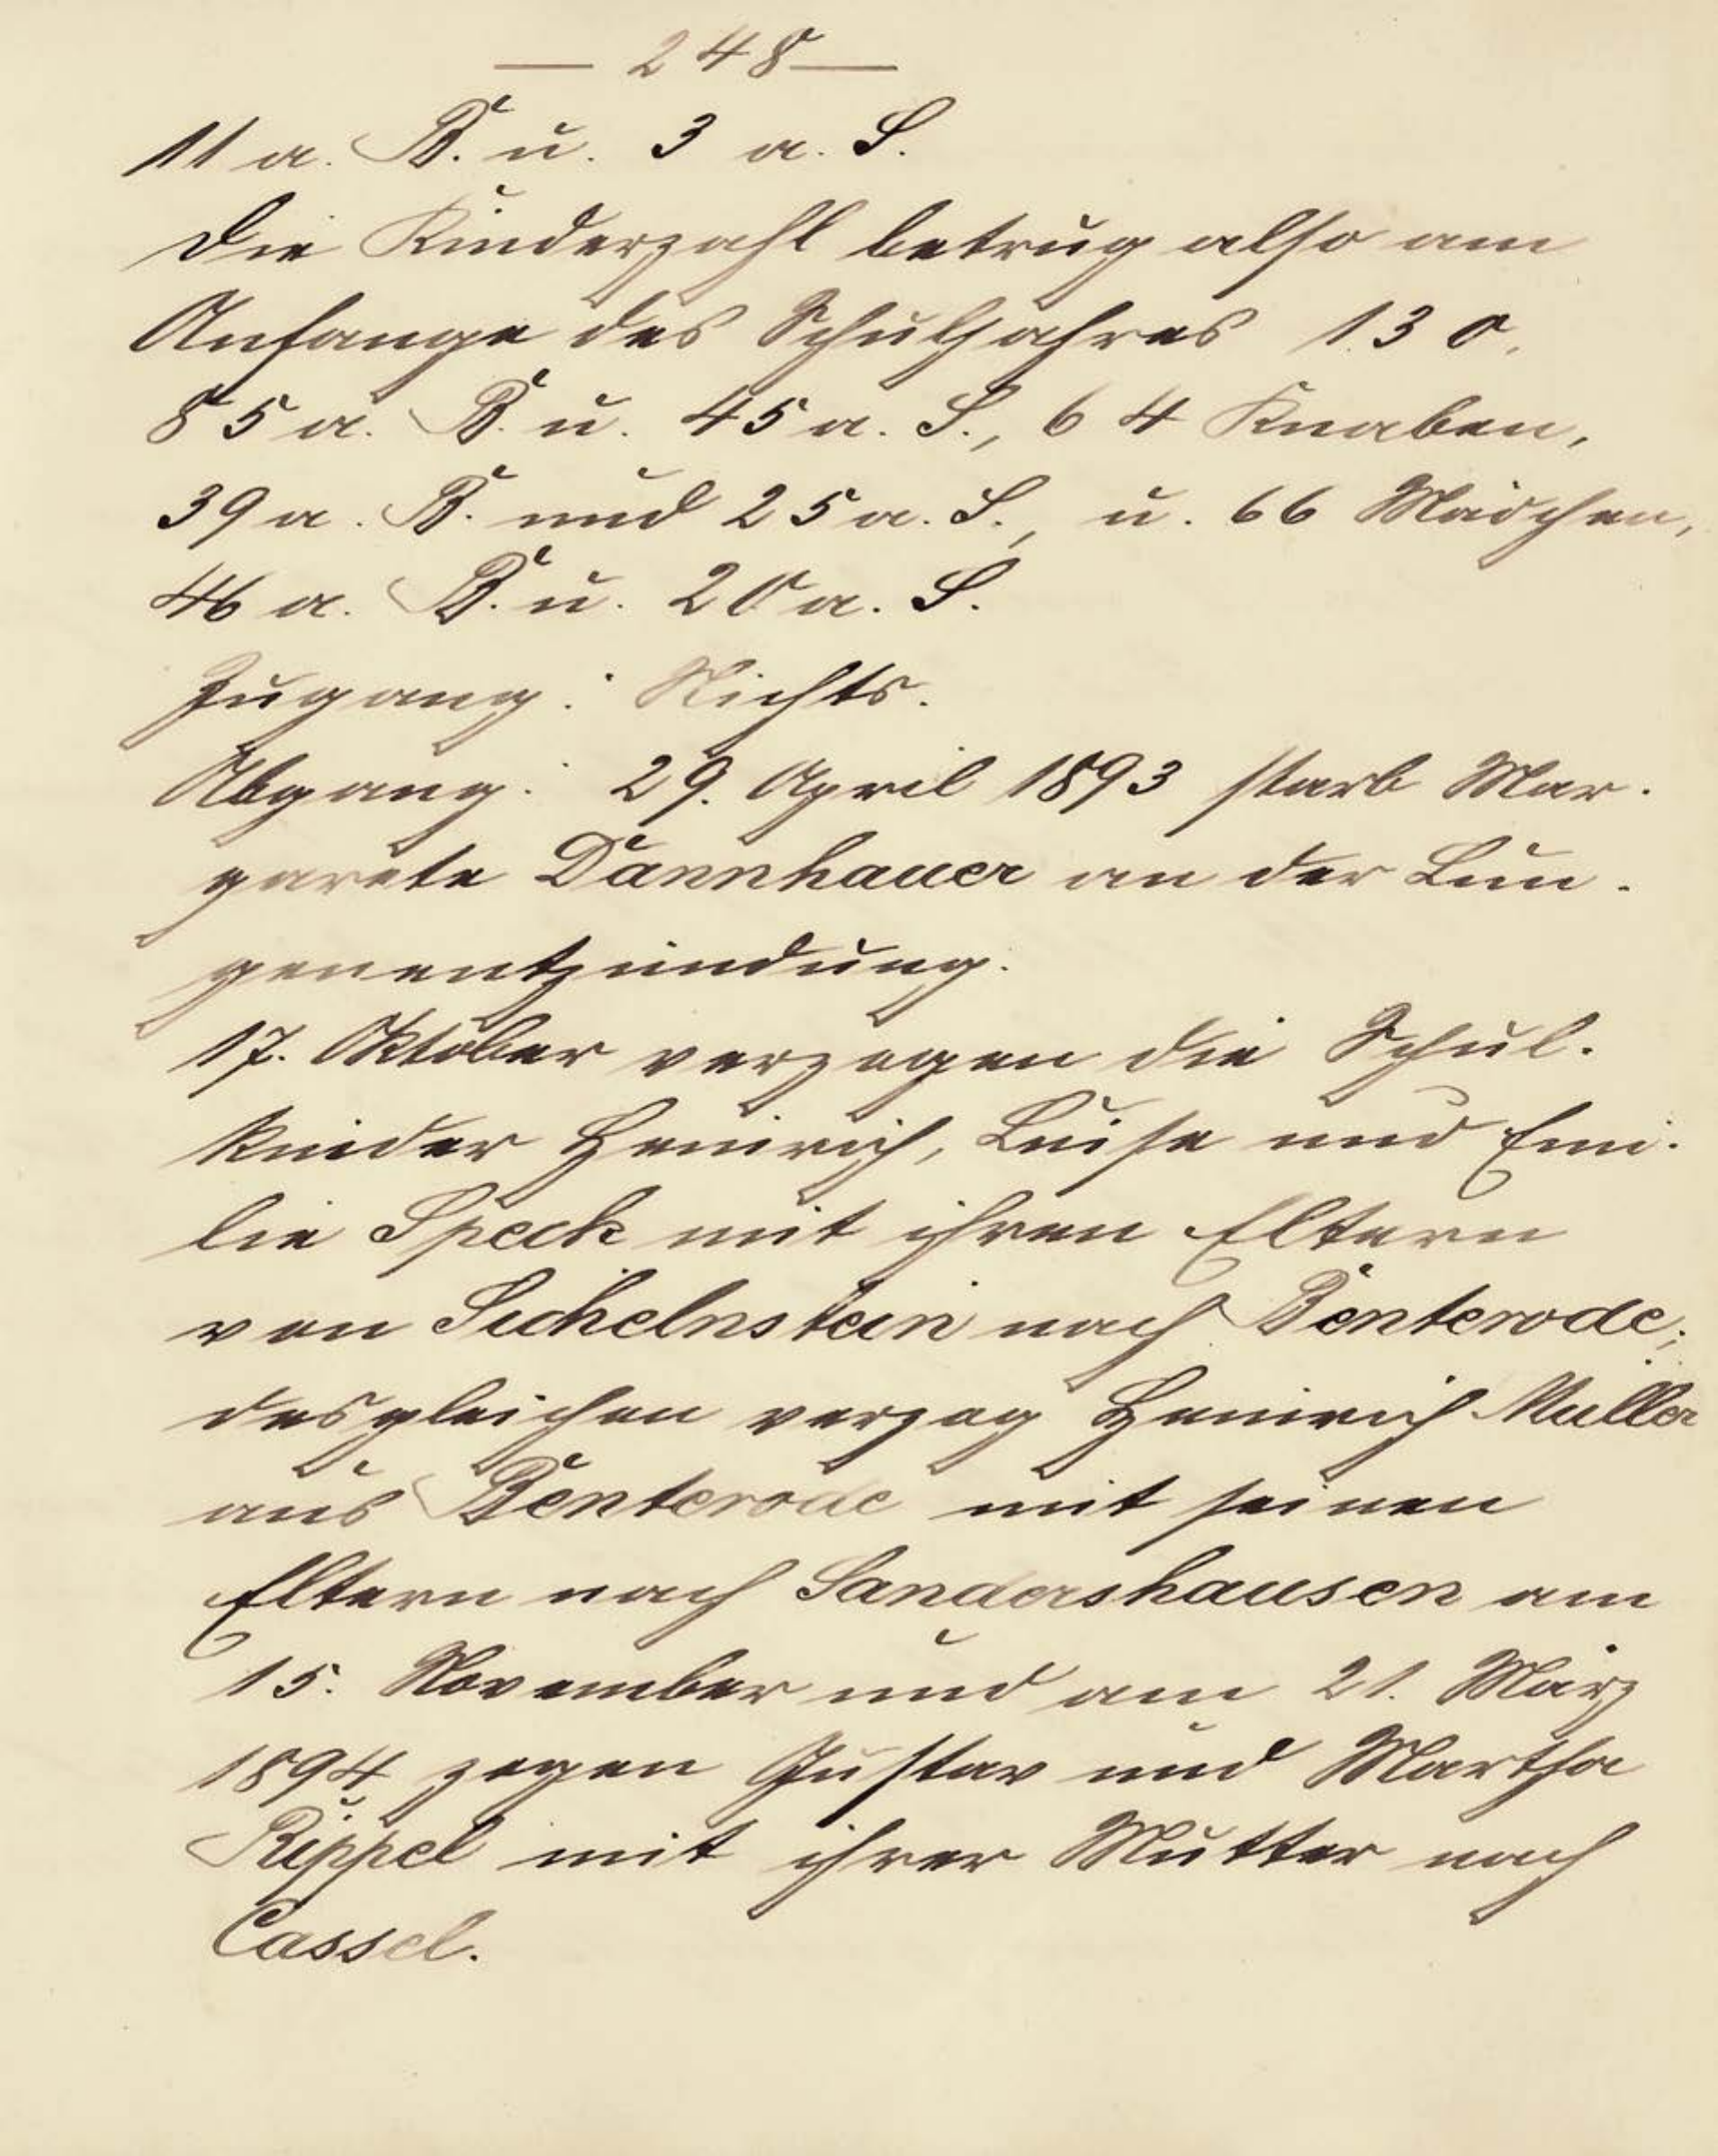 — 248 —
11 a. B. u. 3 a. S.
Die Kinderzahl betrug also am
Anfange des Schuljahres 130,
85 a. B. u. 45 a. S., 64 Knaben,
39 a. B. und 25 a. S., u. 66 Mädchen,
46 a. B. u. 20 a. S.
Zugang: Nichts.
Abgang: 29. April 1893 starb Mar-
garete Dannhauer an der Lun-
genentzündung.
17. Oktober verzogen die Schul-
kinder Heinrich, Luise und Emi-
lie Speck mit ihren Eltern
von Sichelnstein nach Benterode;
desgleichen verzog Heinrich Müller
aus Benterode mit seinen
Eltern nach Sandershausen am
15. November und am 21. März
1894 zogen Gustav und Martha
Rippel mit ihrer Mutter nach
Cassel.